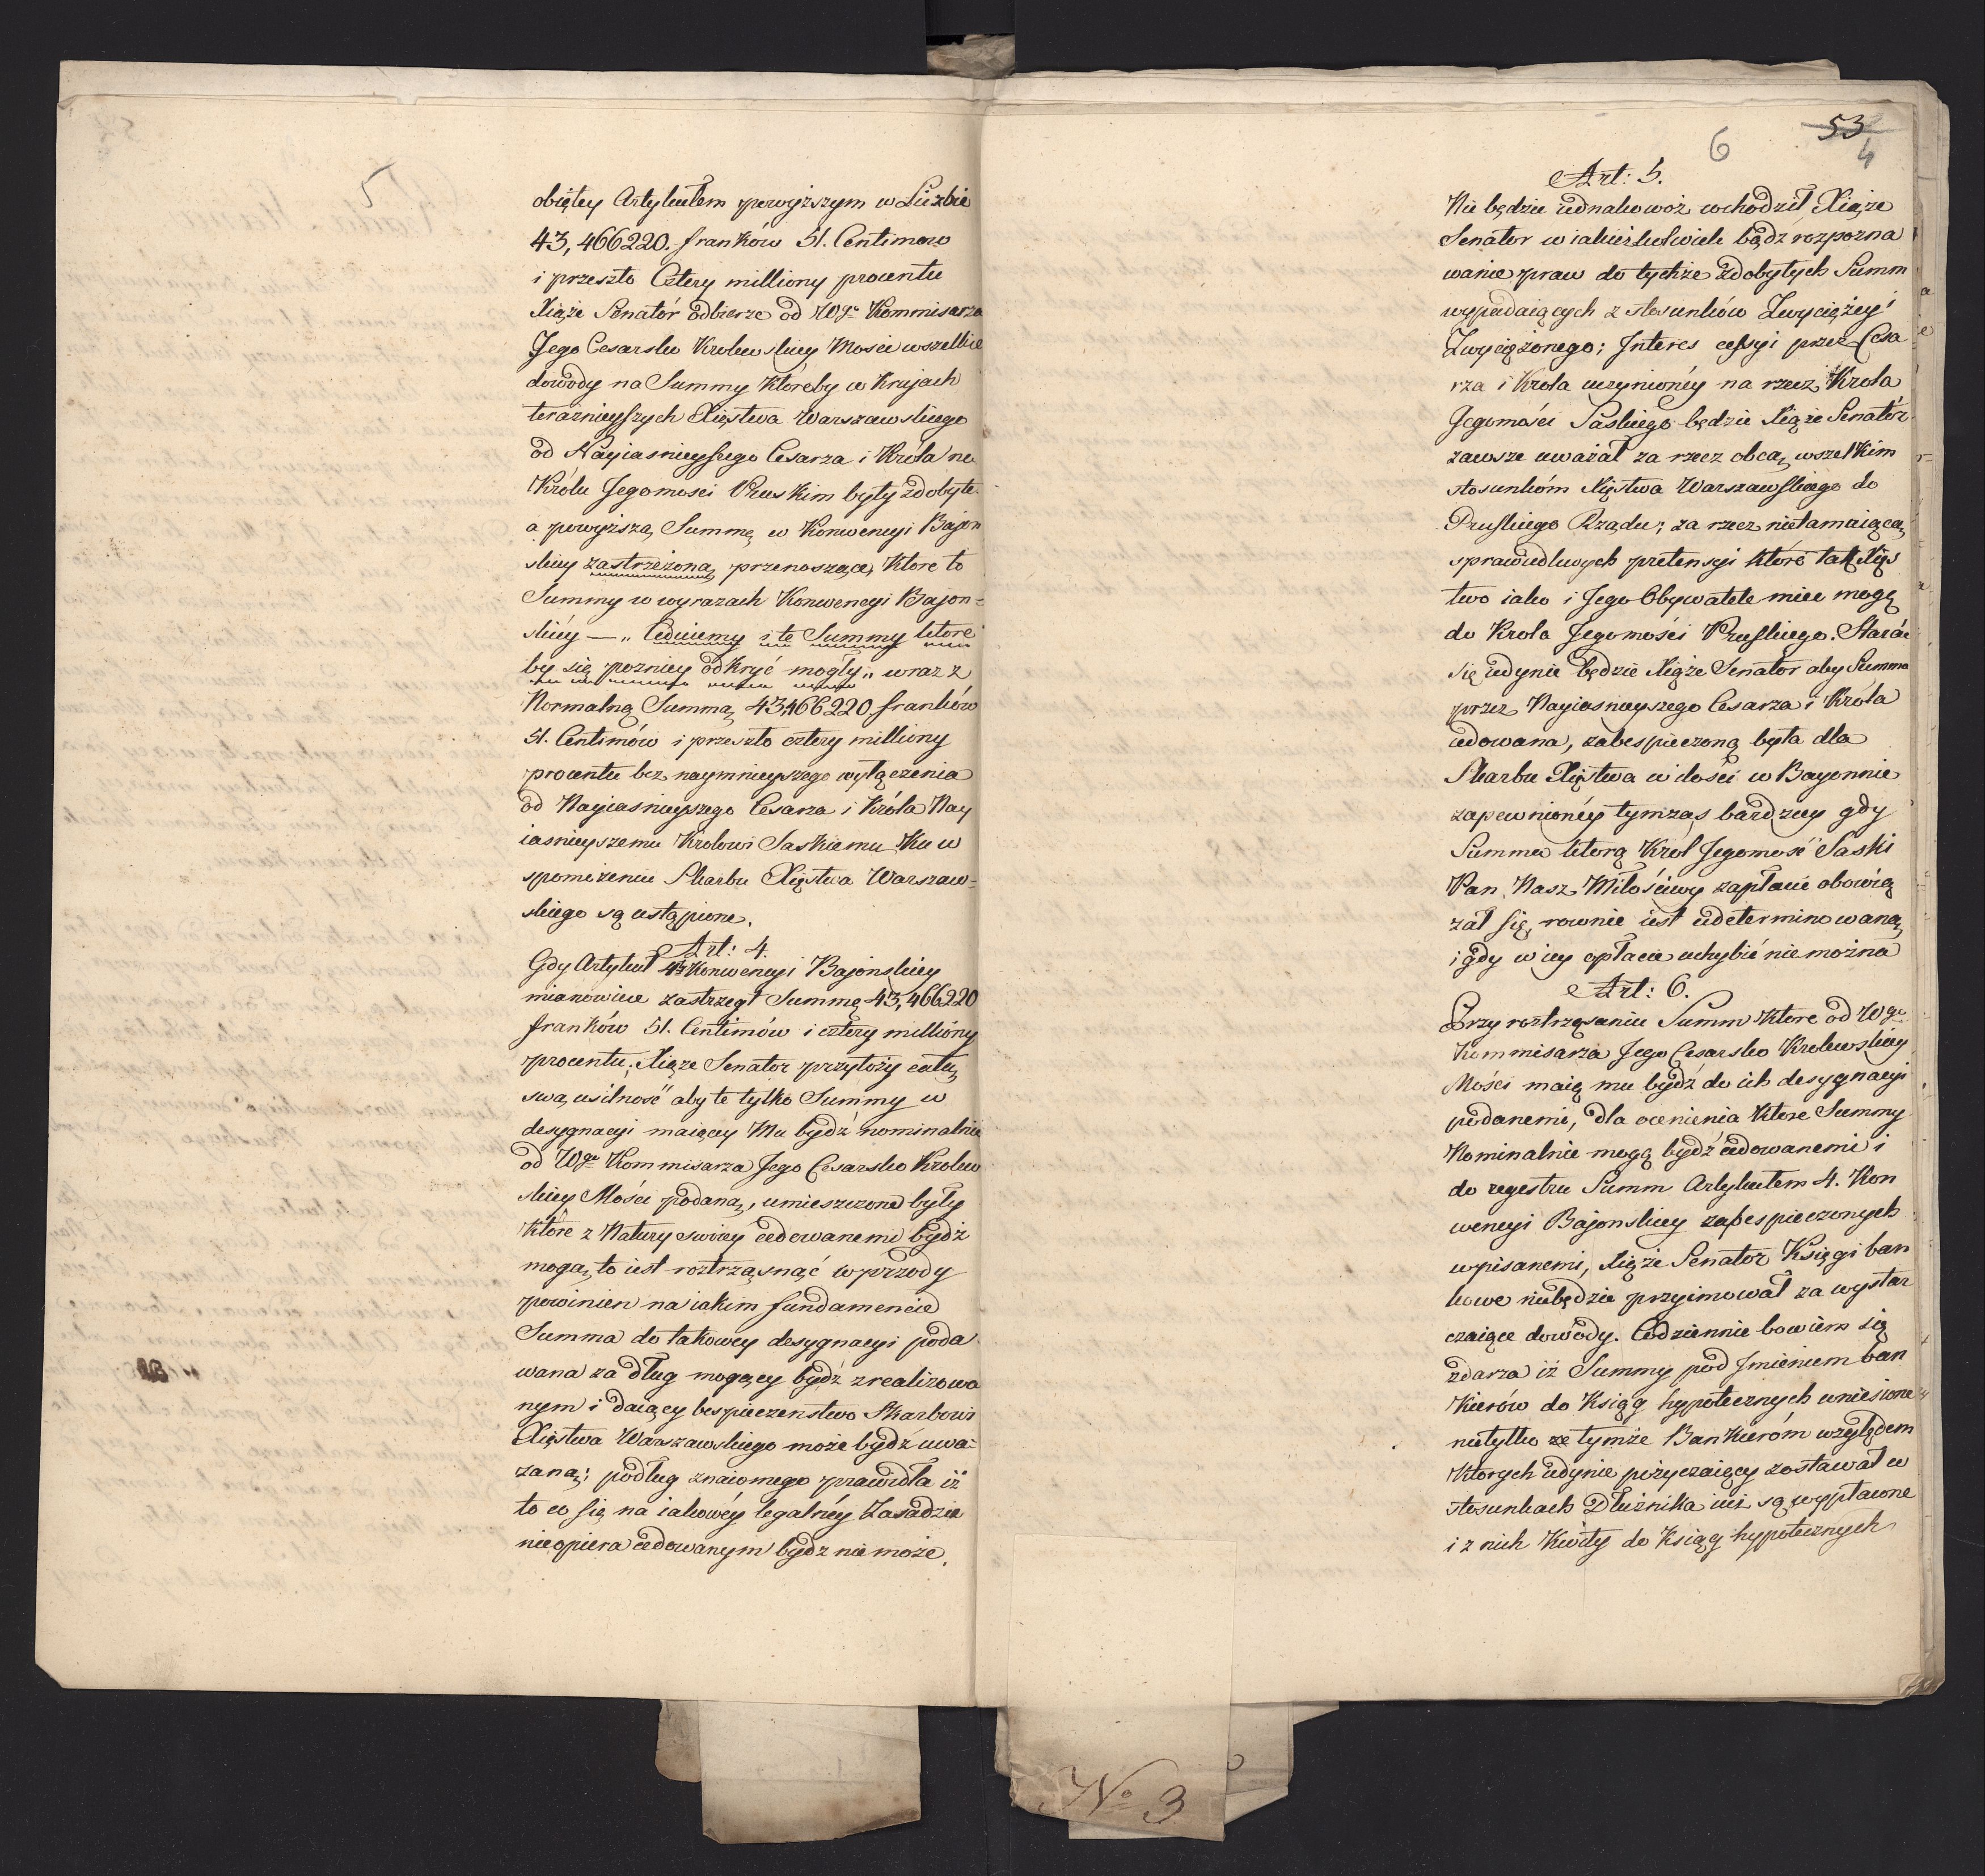 5
obiętey Artykułem powyższym w Liczbie
43,466220. franków 51. Centimów
i przeszło Cztery milliony procentu
Xiąże Senatór odbierze od Wgo Kommisarza
Jego Cesarsko Krolewskiey Mosci wszelkie
dowody na Summy któreby w Krajach
teraznieyszych Xięstwa Warszawskiego
od Nayiasnieyszego Cesarza i Króla na
Królu Jegomosci Pruskim były zdobyte
a powyższą Summę w Konwencyi Bajon
skiey zastrzeżoną przenoszące, Ktore to
Summy w wyrazach Konwencyi Bajon-
skiéy — „ Cedujemy i te Summy ktore
by się pozniey odkryć mogły „ wraz z
Normalną Summą 43,466220 franków
51. Centimów i przeszło cztery milliony
procentu bez naymnieyszego wyłączenia
od Nayiasnieyszego Cesarza i Króla Nay
iasnieyszemu Krolowi Saskiemu Ku w
spomożeniu Skarbu Xięstwa Warszaw-
skiego są ustąpione.
Art: 4.
Gdy Artykuł 4ty Konwencyi Bajonskiey
mianowicie zastrzegł Summę 43,466220
franków 51. Centimów i cztery millióny
procentu; Xiąże Senator przyłoży całą
swą usilność aby te tylko Summy w
desygnacyi maiącey Mu bydź nominalnie
od Wgo Kommisarza Jego Cesarsko Krolew
skiey Mości podaną, umieszczone były
Które z Natury swoiey cedowanemi bydź
mogą, to iest roztrząsnąć wprzody
powinien na iakim fundamencie
Summa do takowey desygnacyi poda
wana za dług mogący bydź zrealizowa
nym i daiący bespieczenstwo Skarbowi
Xięstwa Warszawskiego może bydź uwa-
żaną; podług znaiomego prawidła iż
to co się na iakowéy legalnéy Zasadzie
nieopiera cedowanym bydz nie może.
6
53
4
Art: 5.
Nie będzie iednakowoż wchodził Xiąże
Senator w iakieżkolwiek bądz rozpozna
wanie praw do tychże zdobytych Summ
wypadaiących z stosunków Zwyciężcy i
Zwyciężonego; Interes cessyi przez Cesa
rza i Krola uczynionéy na rzecz Krola
Jegomości Saskiego będzie Xiąże Senatór
zawsze uważał za rzecz obcą wszelkim
stosunkóm Xięstwa Warszawskiego do
Pruskiego Rządu; za rzecz nietamuiącą
sprawiedliwych pretensyi które tak Xięs
two iako i Jego Obywatele mieć mogą
do Krola Jegomości Pruskiego. Starać
się iedynie będzie Xiąże Senator aby Summa
przez Nayiasnieyszego Cesarza i Króla
cedowana, zabespieczoną była dla
Skarbu Xięstwa w ilości w Bayonnie
zapewnionéy tymzas bardziey gdy
Summa ktorą Krol Jegomość Saski
Pan Nasz Miłościwy zapłacić obowią
zał się, rownie iest zdeterminowaną
i gdy w iey opłacie uchybić nie można
Art: 6.
Przy roztrząsaniu Summ ktore od Wgo
Kommisarza Jego Cesarsko Krolewskiey
Mości maią mu bydź do ich desygnacyi
podanemi, dla ocenienia ktore Summy
Nominalnie mogą bydź cedowanemi i
do regestru Summ Artykułem 4. Kon
wencyi Bajonskiey zabespieczonych
wpisanemi, Xiąże Senator Księgi ban
kowe niebędzie przyimował za wystar
czaiące dowody. Codziennie bowiem się
zdarza iż Summy pod Imieniem ban
Kierów do Ksiąg hypotecznych wniesione
nietylko ze tymże Bankieróm względem
Ktorych iedynie pożyczaiący zostawał w
stosunkach Dłużnika iuż są wypłacone
i z nich Kwity do Ksiąg hypotecznych
No 3